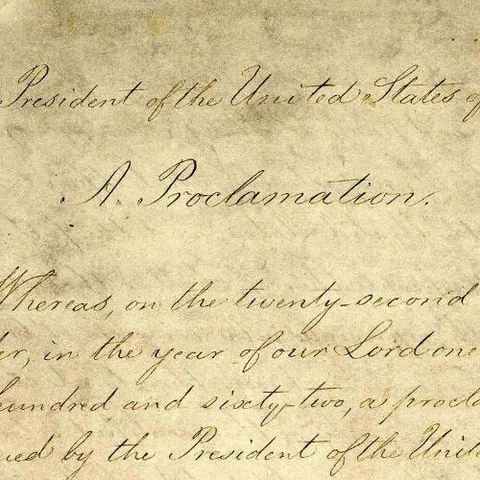 President of the United States of
A Proclamation.
Whereas, on the twenty-second
er, in the year of our Lord one
hundred and sixty-two, a procla
ued by the President of the Unite